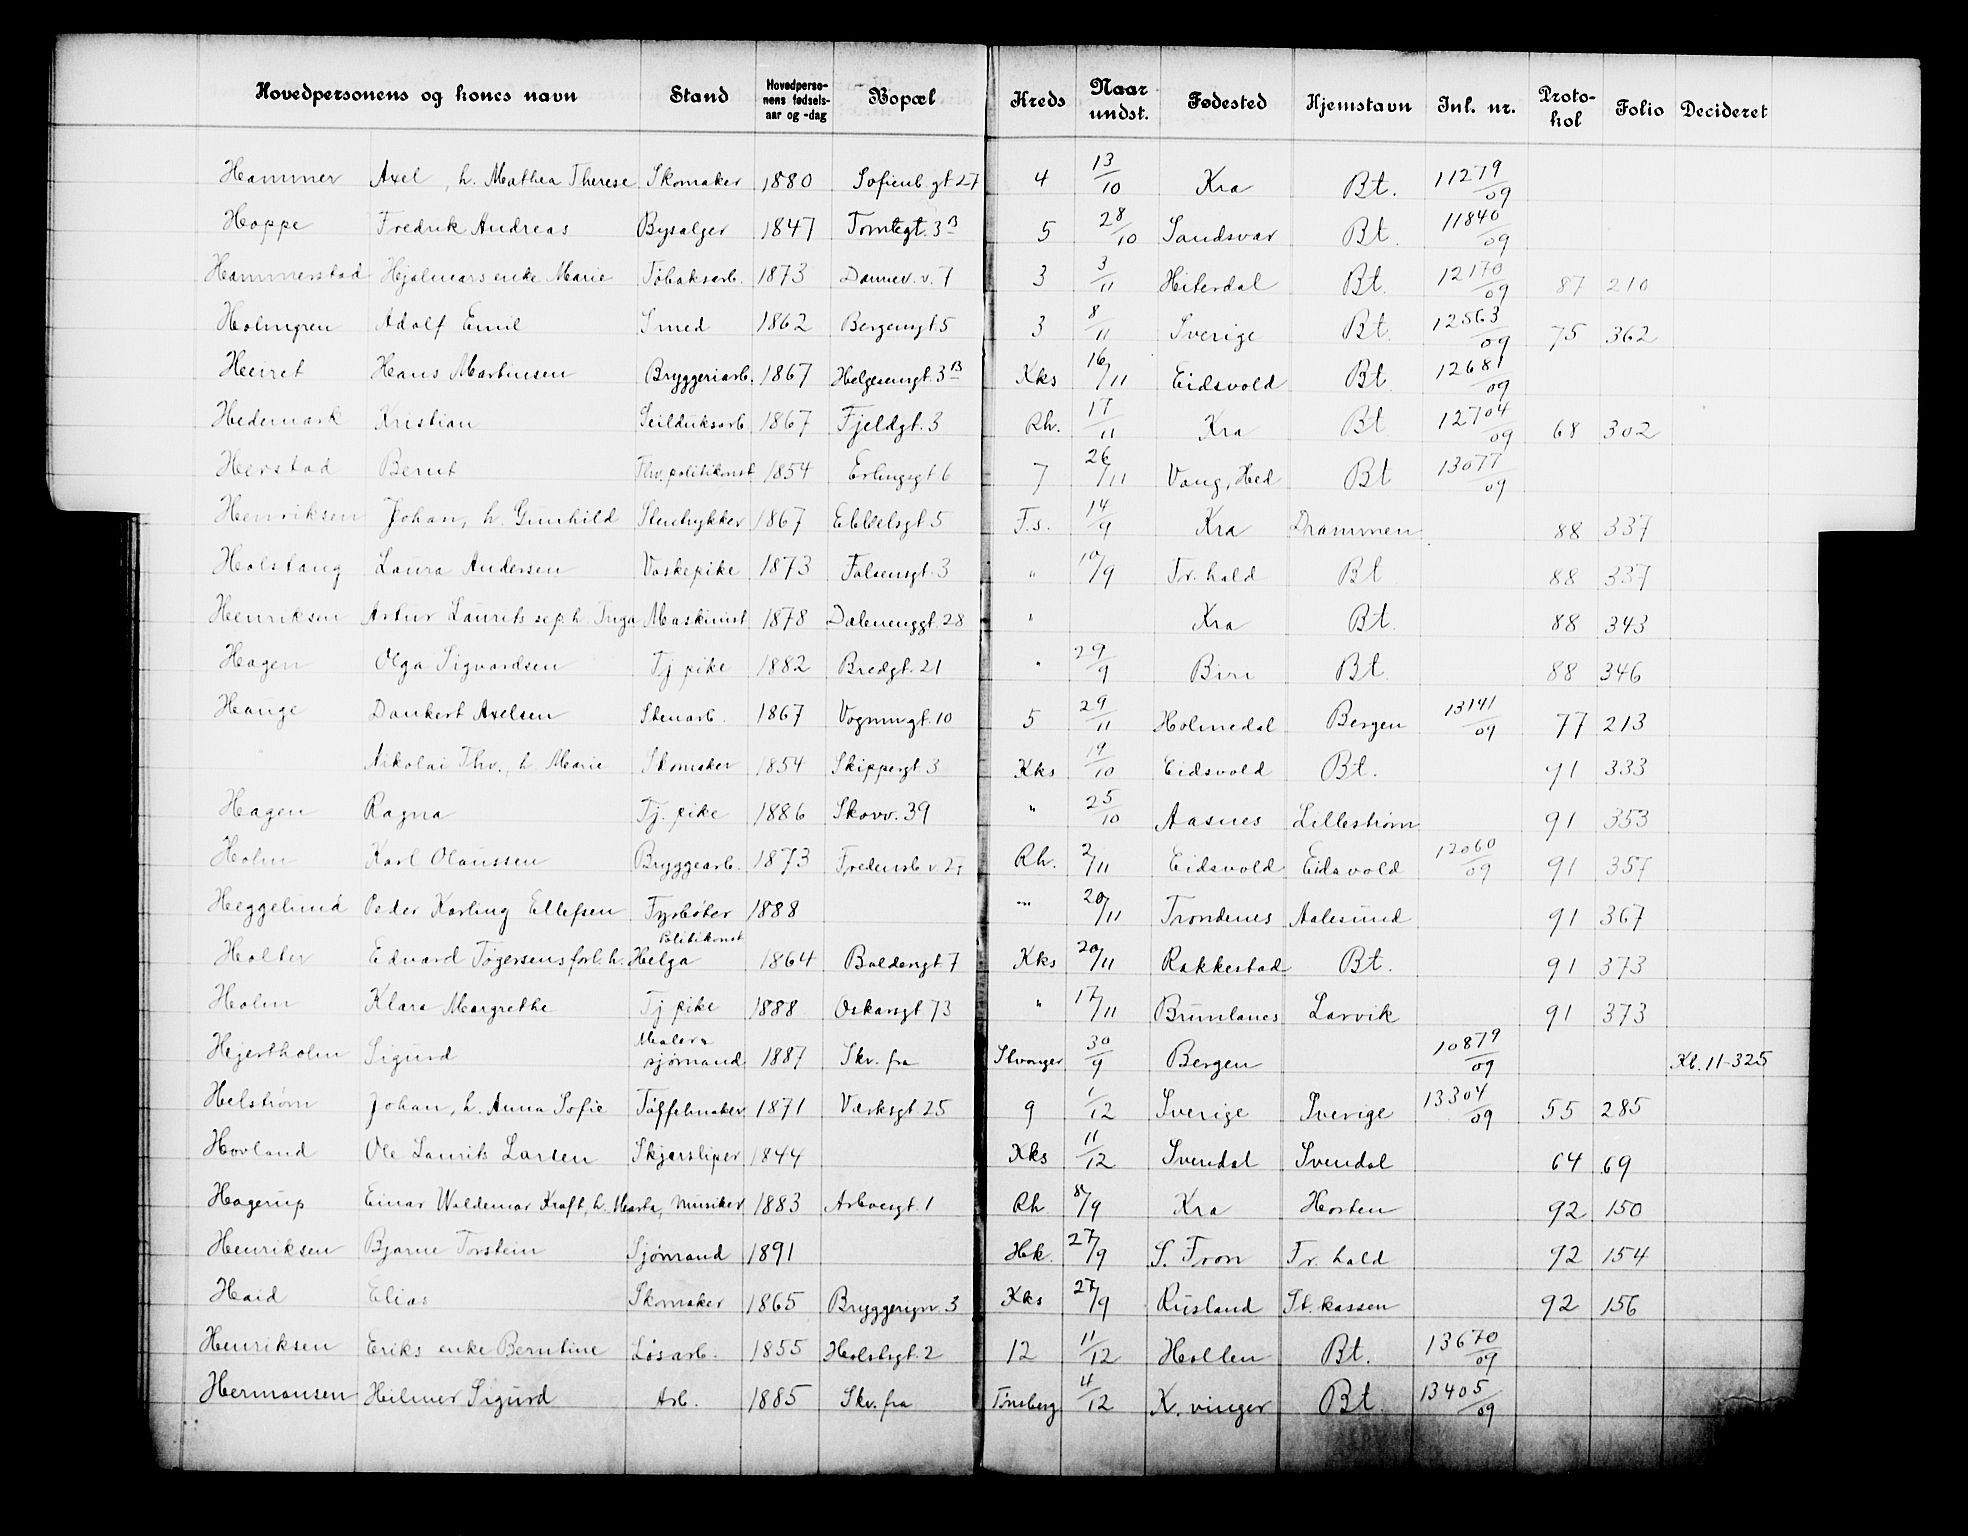 Hovedpersonens og kones navn Stand Hovedperso-nens fødsels-aar og -dag Bopæl Kreds Naar undst. Fødested Hjemstavn Inl. nr. Proto-kol Folio Decideret
Hammer Axel, h. Mathea Therese Skomaker 1880 Sofienb.gt 27 4 13/10 Kra Bt. 11279/09
Hoppe Fredrik Andreas Bysælger 1847 Tomtegt. 3B 5 28/10 Sandsvær Bt. 11840/09
Hammerstad Hjalmars enke Marie Tobaksarb. 1873 Dannev. v. 7 3 3/11 Hiterdal Bt. 12170/09 87 210
Holmgren Adolf Emil Smed 1862 Bergensgt 5 3 8/11 Sverige Bt. 12563/09 75 362
Heiret Hans Martinsen Bryggeriarb. 1867 Helgesensgt. 3B Kks 16/11 Eidsvold Bt. 12681/09
Hedemark Kristian Seilduksarb 1867 Fjeldgt. 3 Rh. 17/11 Kra Bt. 12704/09 68 302
Herstad Bernt Fhv. politikonst 1854 Erlingsgt 6 7 26/11 Vang, Hed Bt 13077/09
Henriksen Johan, h. Gunhild Stentrykker 1867 Ebbelsgt 5 F.s. 14/9 Kra Drammen. 88 337
Holstang Laura Andersen Vaskepike 1873 Falsensgt. 3 " 10/9 Fr. hald Bt 88 337
Henriksen Artur Laurits sep. h. Inga Maskinist 1878 Dælenenggt. 28 " Kra Bt. 88 343
Hagen Olga Sigvardsen Tj pike 1882 Bredgt. 21 " 29/9 Biri Bt. 88 346
Hauge Dankert Axelsen Stenarb. 1867 Vognmgt. 10 5 29/11 Holmedal Bergen 13141/09 77 213
" Nikolai Thv., h Marie Skomaker 1854 Skippergt 3 Kks 19/10 Eidsvold Bt. 91 333
Hagen Ragna Tj. pike 1886 Skovv. 39 " 25/10 Aasnes Lillestrøm 91 353
Holm Karl Olaussen Bryggearb. 1873 Fredensb. v. 27 Rh. 2/11 Eidsvold Eidsvold 12060/09 91 357
Heggelund Peder Karling Ellefsen Fyrbøter 1888 " 20/11 Trondenes Aalesund 91 367
Holter Eduard Tøgersens forl. h. Helga Politikonst 1864 Baldersgt. 7 Kks 20/11 Rakkestad Bt. 91 373
Holm Klara Margrethe Tj pike 1888 Oskarsgt 73 " 17/11 Brunlanes Larvik 91 373
Hjertholm Sigurd Maler & sjømand 1887 Skr. fra Stvanger 30/9 Bergen 10879/09 Kb. 11-325
Helstrøm Johan, h. Anna Sofie Tøffelmaker 1871 Værksgt. 25 9 1/12 Sverige Sverige 13304/09 55 285
Hovland Ole Laurits Larsen Skjærsliper 1844 Kks 11/12 Svendal Svendal 64 69
Hagerup Einar Waldemar Kraft, h. Marta, musiker 1883 Arboesgt. 1 Rh 8/9 Kra Horten 92 150
Henriksen Bjarne Torstein Sjømand 1891 Hk. 27/9 S. Fron Fr. hald 92 154
Haid Elias Skomaker 1865 Bryggerign. 3 Kks 27/9 Rusland St. kassen 92 156
Henriksen Eriks enke Berntine Løsarb. 1855 Holstsgt. 2 12 11/12 Hollen Bt. 13670/09
Hermansen Hilmer Sigurd Arb. 1885 Skr. fra Tønsberg 4/12 K. vinger Bt. 13405/09